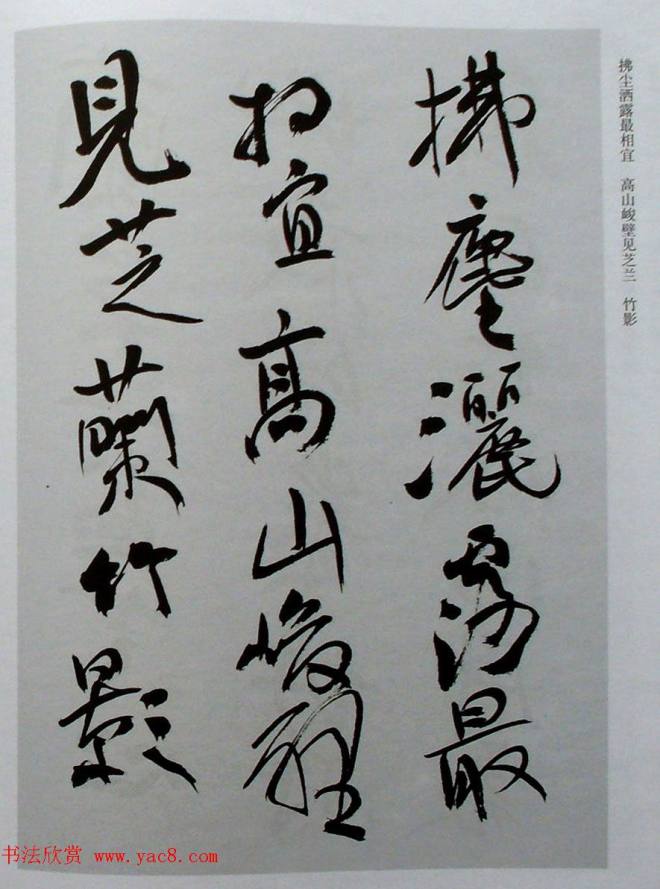 拂塵灑露最
相宜高山峻壁
見芝蘭竹影
拂尘洒露最相宜　高山峻壁见芝兰　竹影
书法欣赏 www.yac8.com